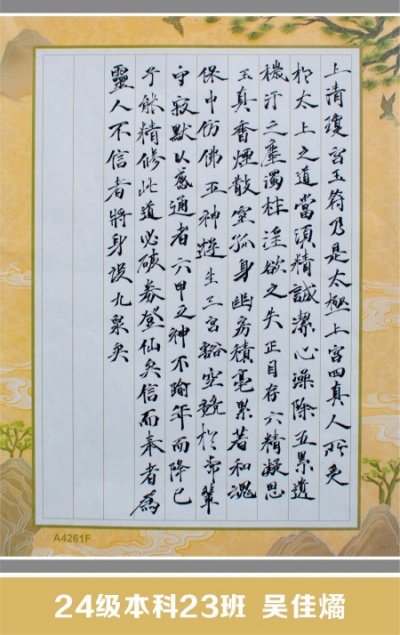 上清瓊宮玉符乃是太極上宮四真人所受
於太上之道當須精誠潔心澡除五累遺
穢汙之塵濁杜淫欲之失正目存六精凝思
玉真香煙散室孤身幽房積毫累著和魂
保中仿佛五神遊生三宮豁空競於常輩
守寂默以感通者六甲之神不踰年而降已
子能精修此道必破券登仙矣信而奉者為
靈人不信者將身沒九泉矣
A4261F
24级本科23班 吴佳燏